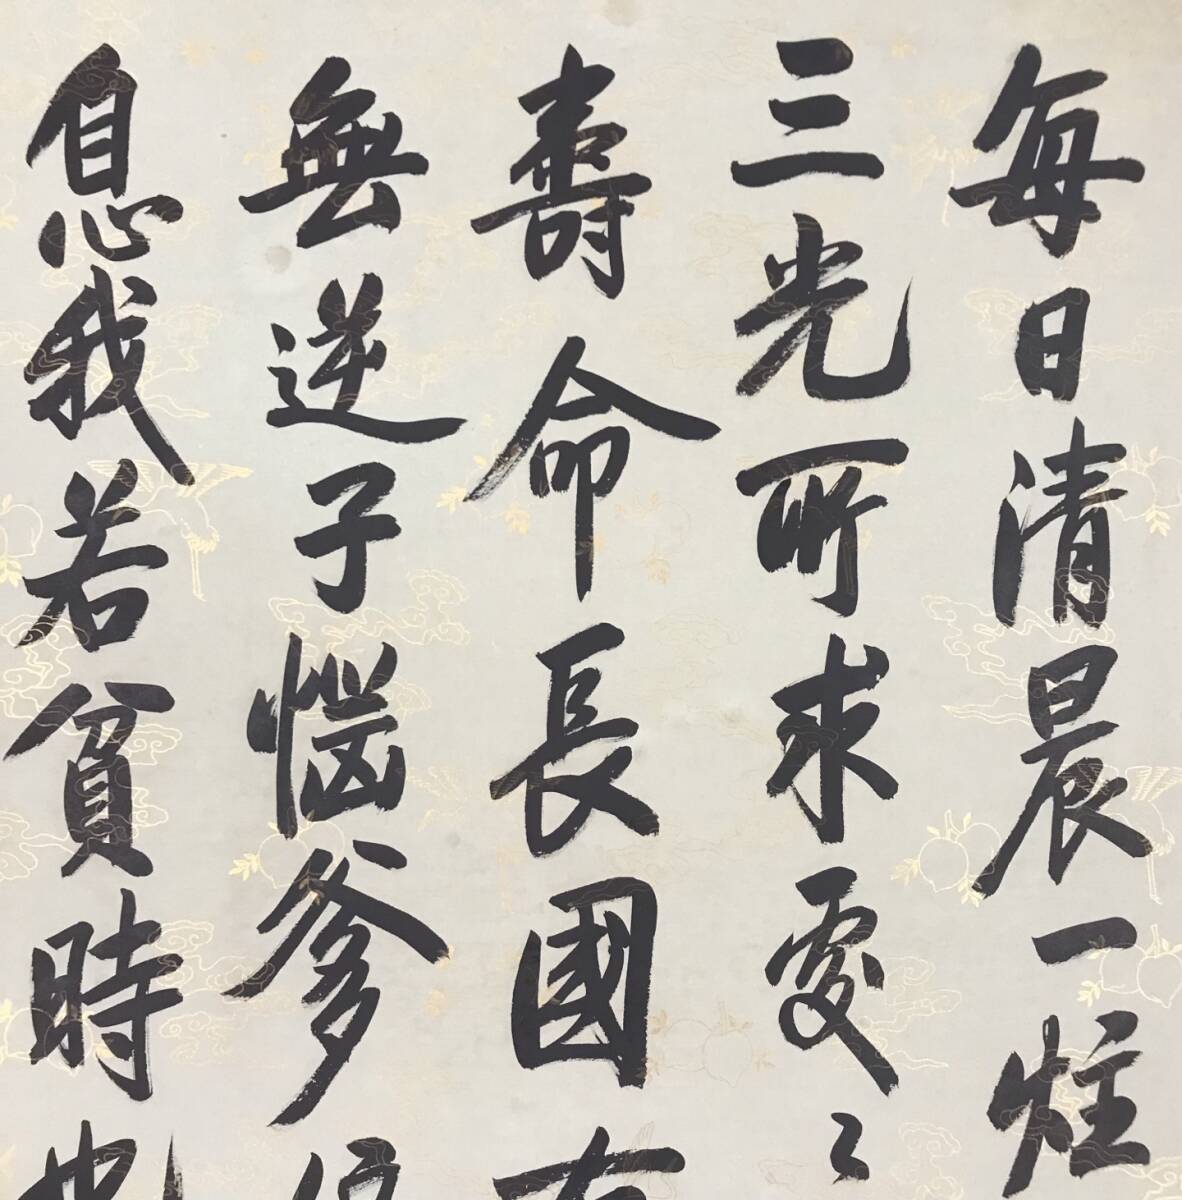 每日清晨一炷
三光所求處々
壽命長國有
無逆子惱爹
息我若貧時